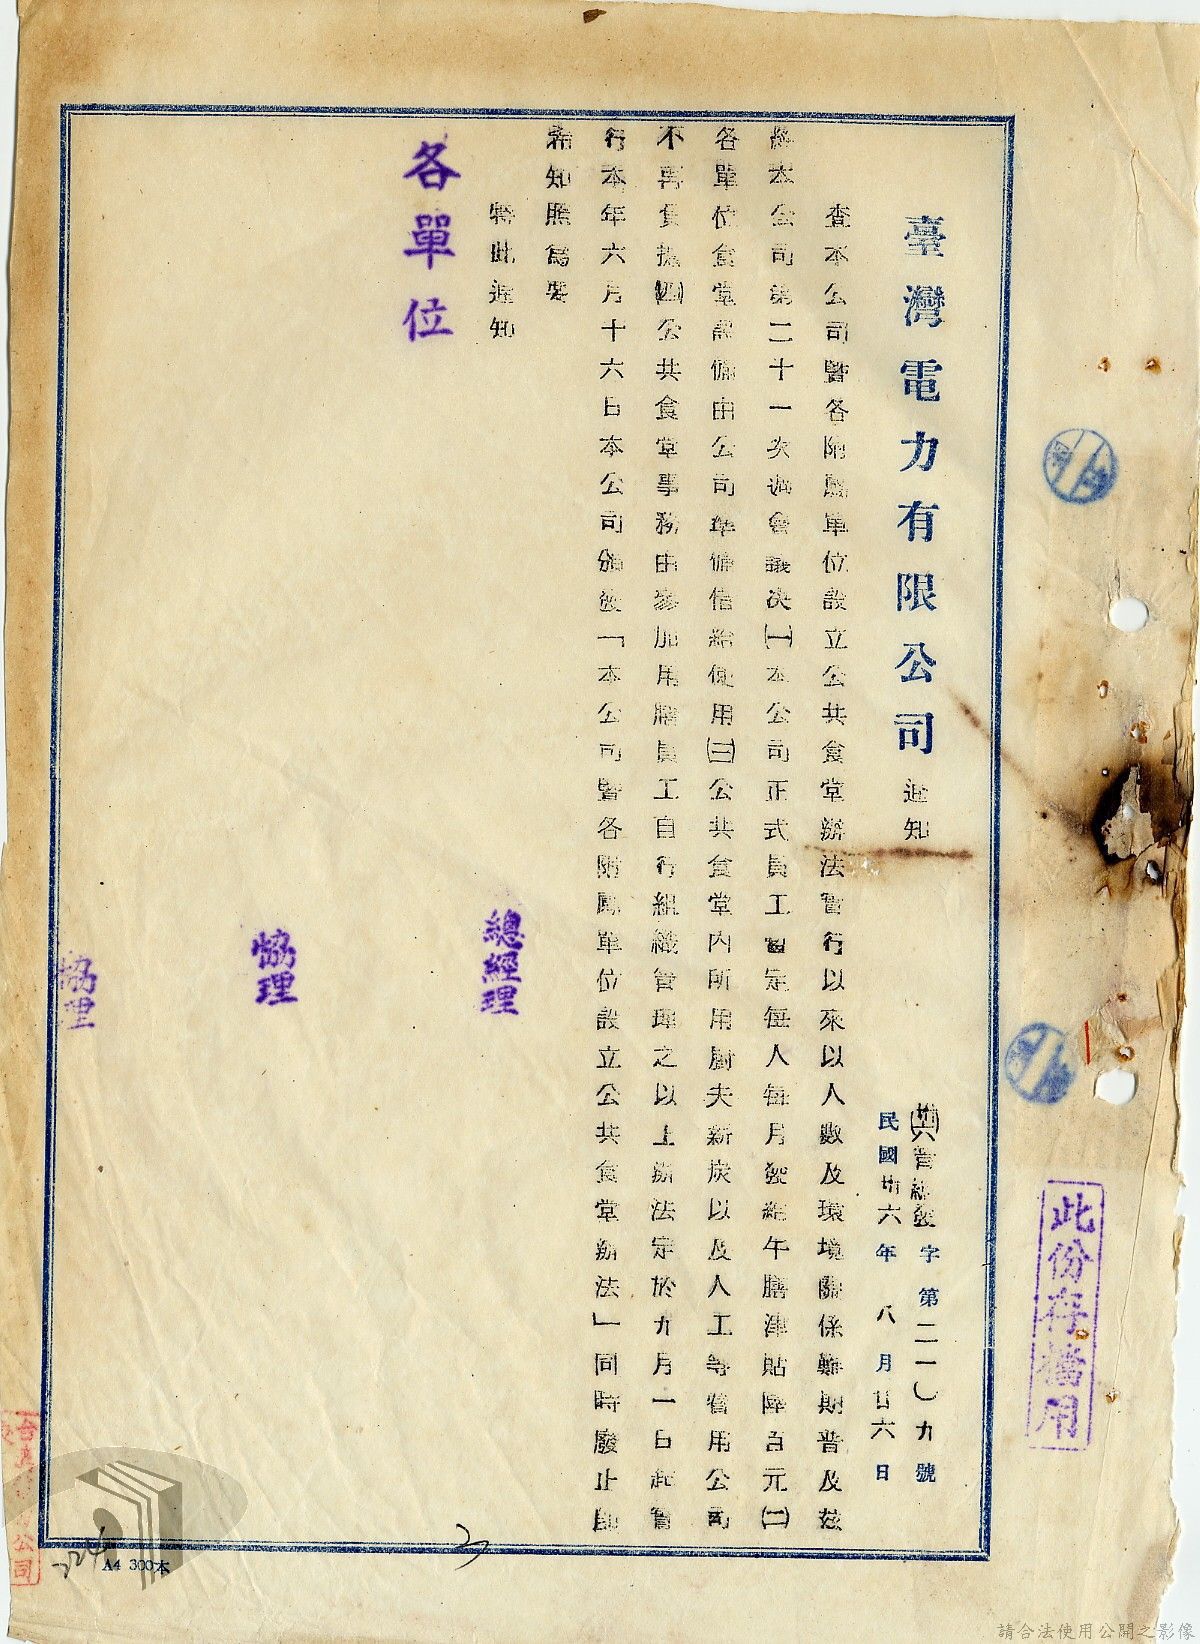 臺灣電力有限公司通知
卅六 字第二一〇九號
民國卅六年八月廿六日
查本公司暨各附屬單位設立公共食堂辦法實行以來以人數及環境關係難期普及茲
經本公司第二十一次 會議決(一)本公司正式員工暫定每人每月發給午膳津貼陸百元(二)
各單位食堂設備由公司準備借給使用(三)公共食堂內所用廚夫薪炭以及人工等費用公司
不再負擔(四)公共食堂事務由參加用膳員工自行組織管理之以上辦法定於九月一日起實
行本年六月十六日本公司頒發「本公司暨各附屬單位設立公共食堂辦法」同時廢止即
希知照為要
特此通知
各單位
總經理
協理
協理
此份存檔用
A4 300本
請合法使用公開之影像